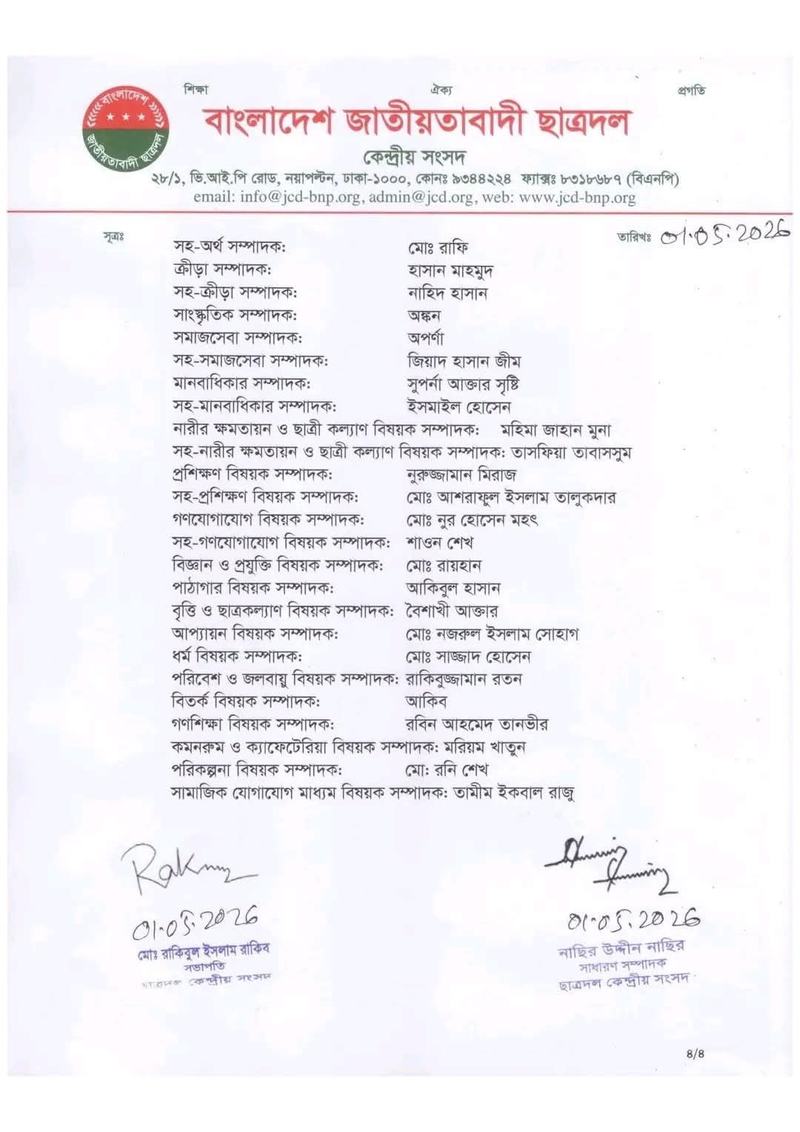 শিক্ষা ঐক্য প্রগতি
বাংলাদেশ
জাতীয়তাবাদী ছাত্রদল
বাংলাদেশ জাতীয়তাবাদী ছাত্রদল
কেন্দ্রীয় সংসদ
২৮/১, ভি.আই.পি রোড, নয়াপল্টন, ঢাকা-১০০০, ফোনঃ ৯৩৪৪২২৪ ফ্যাক্সঃ ৮৩১৮৬৮৭ (বিএনপি)
email: info@jcd-bnp.org, admin@jcd.org, web: www.jcd-bnp.org
সূত্রঃ
তারিখঃ 01.05.2026
সহ-অর্থ সম্পাদক: মোঃ রাফি
ক্রীড়া সম্পাদক: হাসান মাহমুদ
সহ-ক্রীড়া সম্পাদক: নাহিদ হাসান
সাংস্কৃতিক সম্পাদক: অঙ্কন
সমাজসেবা সম্পাদক: অপর্ণা
সহ-সমাজসেবা সম্পাদক: জিয়াদ হাসান জীম
মানবাধিকার সম্পাদক: সুপর্না আক্তার সৃষ্টি
সহ-মানবাধিকার সম্পাদক: ইসমাইল হোসেন
নারীর ক্ষমতায়ন ও ছাত্রী কল্যাণ বিষয়ক সম্পাদক: মহিমা জাহান মুনা
সহ-নারীর ক্ষমতায়ন ও ছাত্রী কল্যাণ বিষয়ক সম্পাদক: তাসফিয়া তাবাসসুম
প্রশিক্ষণ বিষয়ক সম্পাদক: নুরুজ্জামান মিরাজ
সহ-প্রশিক্ষণ বিষয়ক সম্পাদক: মোঃ আশরাফুল ইসলাম তালুকদার
গণযোগাযোগ বিষয়ক সম্পাদক: মোঃ নুর হোসেন মহৎ
সহ-গণযোগাযোগ বিষয়ক সম্পাদক: শাওন শেখ
বিজ্ঞান ও প্রযুক্তি বিষয়ক সম্পাদক: মোঃ রায়হান
পাঠাগার বিষয়ক সম্পাদক: আকিবুল হাসান
বৃত্তি ও ছাত্রকল্যাণ বিষয়ক সম্পাদক: বৈশাখী আক্তার
আপ্যায়ন বিষয়ক সম্পাদক: মোঃ নজরুল ইসলাম সোহাগ
ধর্ম বিষয়ক সম্পাদক: মোঃ সাজ্জাদ হোসেন
পরিবেশ ও জলবায়ু বিষয়ক সম্পাদক: রাকিবুজ্জামান রতন
বিতর্ক বিষয়ক সম্পাদক: আকিব
গণশিক্ষা বিষয়ক সম্পাদক: রবিন আহমেদ তানভীর
কমনরুম ও ক্যাফেটেরিয়া বিষয়ক সম্পাদক: মরিয়ম খাতুন
পরিকল্পনা বিষয়ক সম্পাদক: মো: রনি শেখ
সামাজিক যোগাযোগ মাধ্যম বিষয়ক সম্পাদক: তামীম ইকবাল রাজু
01.05.2026
মোঃ রাকিবুল ইসলাম রাকিব
সভাপতি
ছাত্রদল কেন্দ্রীয় সংসদ
01.05.2026
নাছির উদ্দীন নাছির
সাধারণ সম্পাদক
ছাত্রদল কেন্দ্রীয় সংসদ
৪/৪